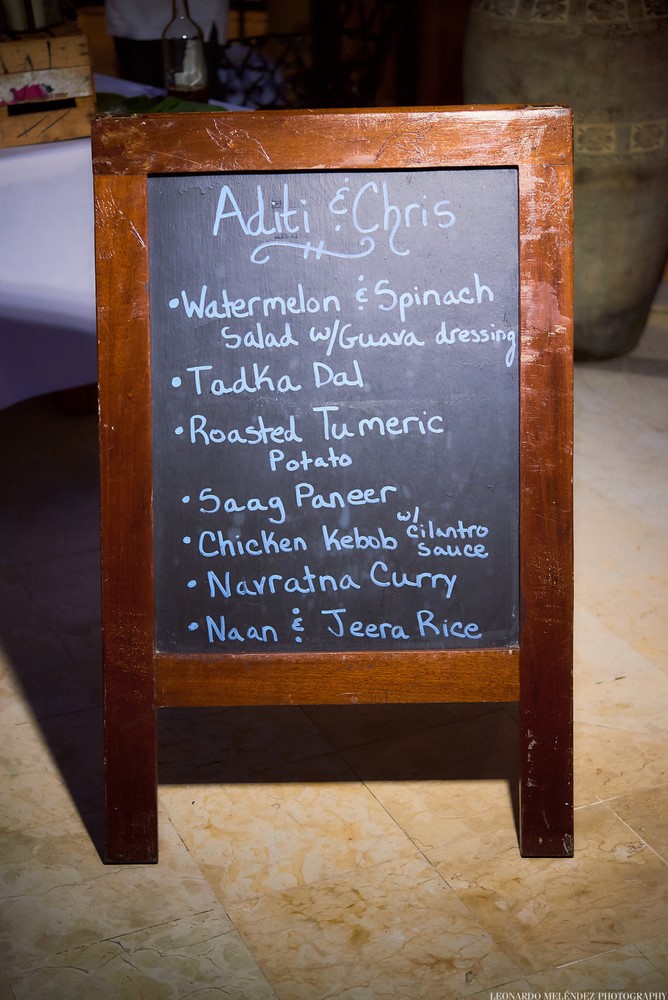 Aditi & Chris
•Watermelon & Spinach
Salad w/Guava dressing
•Tadka Dal
•Roasted Tumeric
Potato
•Saag Paneer
•Chicken Kebob w/ cilantro
sauce
•Navratna Curry
•Naan & Jeera Rice
LEONARDO MELÉNDEZ PHOTOGRAPHY